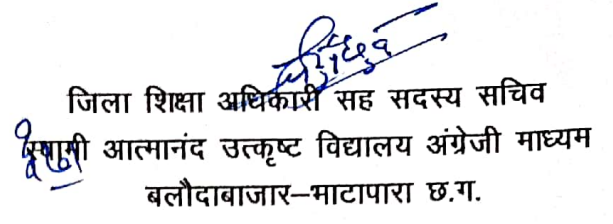 जिला शिक्षा अधिकारी सह सदस्य सचिव
स्वामी आत्मानंद उत्कृष्ट विद्यालय अंग्रेजी माध्यम
बलौदाबाजार–भाटापारा छ.ग.